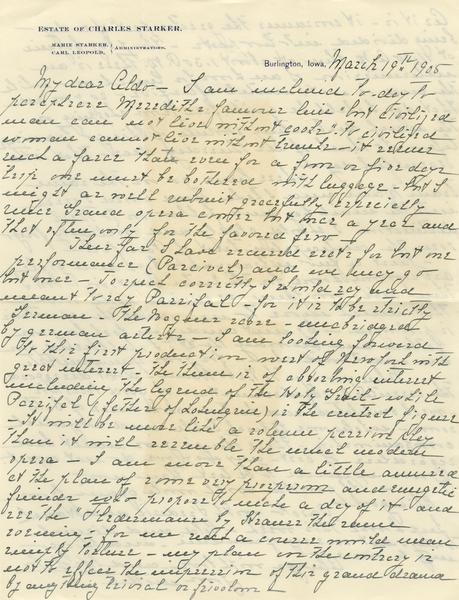 ESTATE OF CHARLES STARKER.
MARIE STARKER,
CARL LEOPOLD, } ADMINISTRATORS.
Burlington, Iowa, March 19th 1905
My dear Aldo — I am inclined to-day to
paraphrase Merediths famous line "but civilized
man can not live without cooks" - to civilized
woman cannot live without trunks - it seems
such a farce that even for a four or five days
trip one must be bothered with luggage - but I
might as well submit gracefully especially
since Grand opera comes but once a year and
that often only for the favored few —
Thus far I have secured seats for but one
performance (Parcival) and we may go
but once - To speak correctly I should say and
meant to say Parsifal - for it is to be strictly
German - The Wagner score - unabridged
by german artists - I am looking forward
to this first production west of New York with
great interest - the theme is of absorbing interest
including the legend of the Holy Grail - while
Parsifal (father of Lohengrin) is the central figure
- It will be more like a solemn passion play
than it will resemble the usual modern
opera - I am more than a little amused
at the plan of some very prosperous and energetic
friends who propose to make a day of it and
see the "Fledermaus by Strauss the same
evening - for me such a course would mean
simply torture - my plan on the contrary is
not to efface the impression of this grand drama
by anything trivial or frivolous -